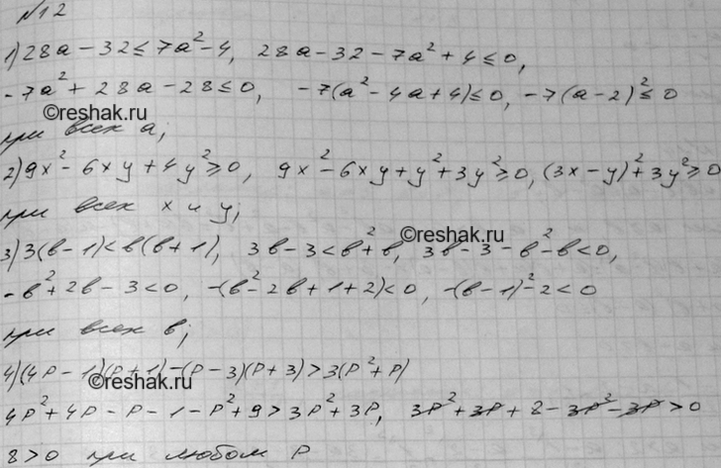 №12
1) 28a - 32 ≤ 7a² - 4, 28a - 32 - 7a² + 4 ≤ 0,
-7a² + 28a - 28 ≤ 0, -7(a² - 4a + 4) ≤ 0, -7(a - 2)² ≤ 0
©reshak.ru
при всех a;
2) 9x² - 6xy + 4y² ≥ 0, 9x² - 6xy + y² + 3y² ≥ 0, (3x - y)² + 3y² ≥ 0
при всех x и y;
©reshak.ru
3) 3(b - 1) < b(b + 1), 3b - 3 < b² + b, 3b - 3 - b² - b < 0,
-b² + 2b - 3 < 0, -(b² - 2b + 1 + 2) < 0, -(b - 1)² - 2 < 0
при всех b;
4) (4P - 1)(P + 1) - (P - 3)(P + 3) > 3(P² + P)
©reshak.ru
4P² + 4P - P - 1 - P² + 9 > 3P² + 3P, 3P² + 3P + 8 - 3P² - 3P > 0
8 > 0 при любом P